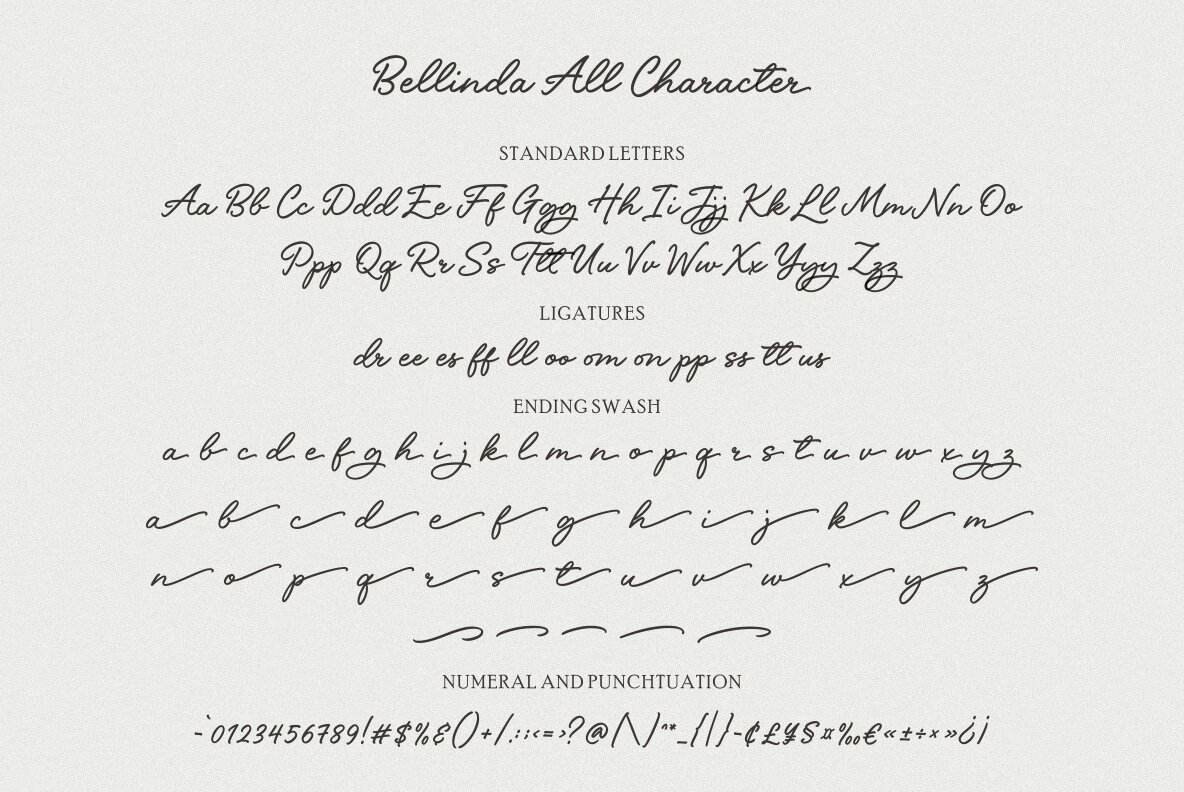 Bellinda All Character
STANDARD LETTERS
Aa Bb Cc Ddd Ee Ff Ggg Hh Ii Jjj Kk Ll Mm Nn Oo
Ppp Qq Rr Ss Ttt Uu Vv Ww Xx Yyy Zzz
LIGATURES
dr ee es ff ll oo om on pp ss tt us
ENDING SWASH
a b c d e f g h i j k l m n o p q r s t u v w x y z
a b c d e f g h i j k l m
n o p q r s t u v w x y z
NUMERAL AND PUNCHTUATION
-`0123456789!#$%&()+/.:;<=>?@[\]^*_{|}-¢£¥§¤‰€«±÷×»¿¡